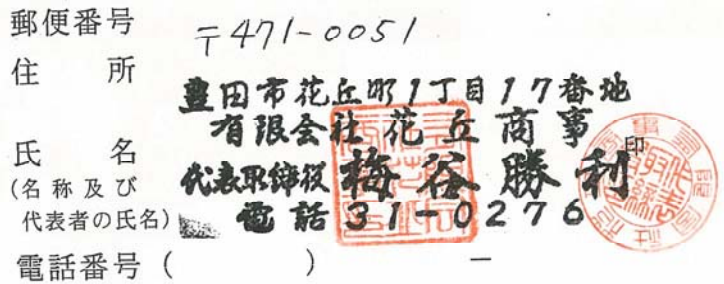 郵便番号 〒471-0051
住所
豊田市花丘町1丁目17番地
有限会社花丘商事
氏名 印
(名称及び 代表取締役 梅谷勝利
代表者の氏名) 電話31-0276
電話番号( ) -